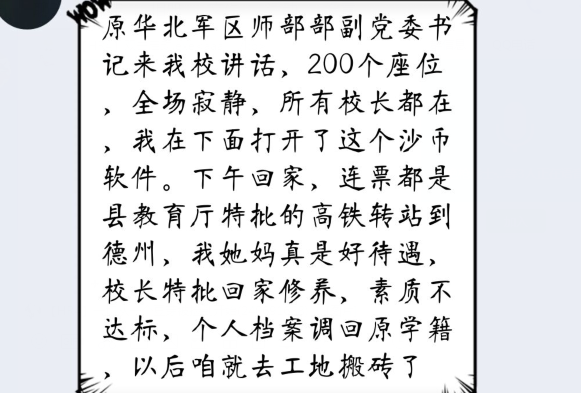 WOW
原华北军区师部部副党委书
记来我校讲话，200个座位
，全场寂静，所有校长都在
，我在下面打开了这个沙币
软件。下午回家，连票都是
县教育厅特批的高铁转站到
德州，我她妈真是好待遇，
校长特批回家修养，素质不
达标，个人档案调回原学籍
，以后咱就去工地搬砖了